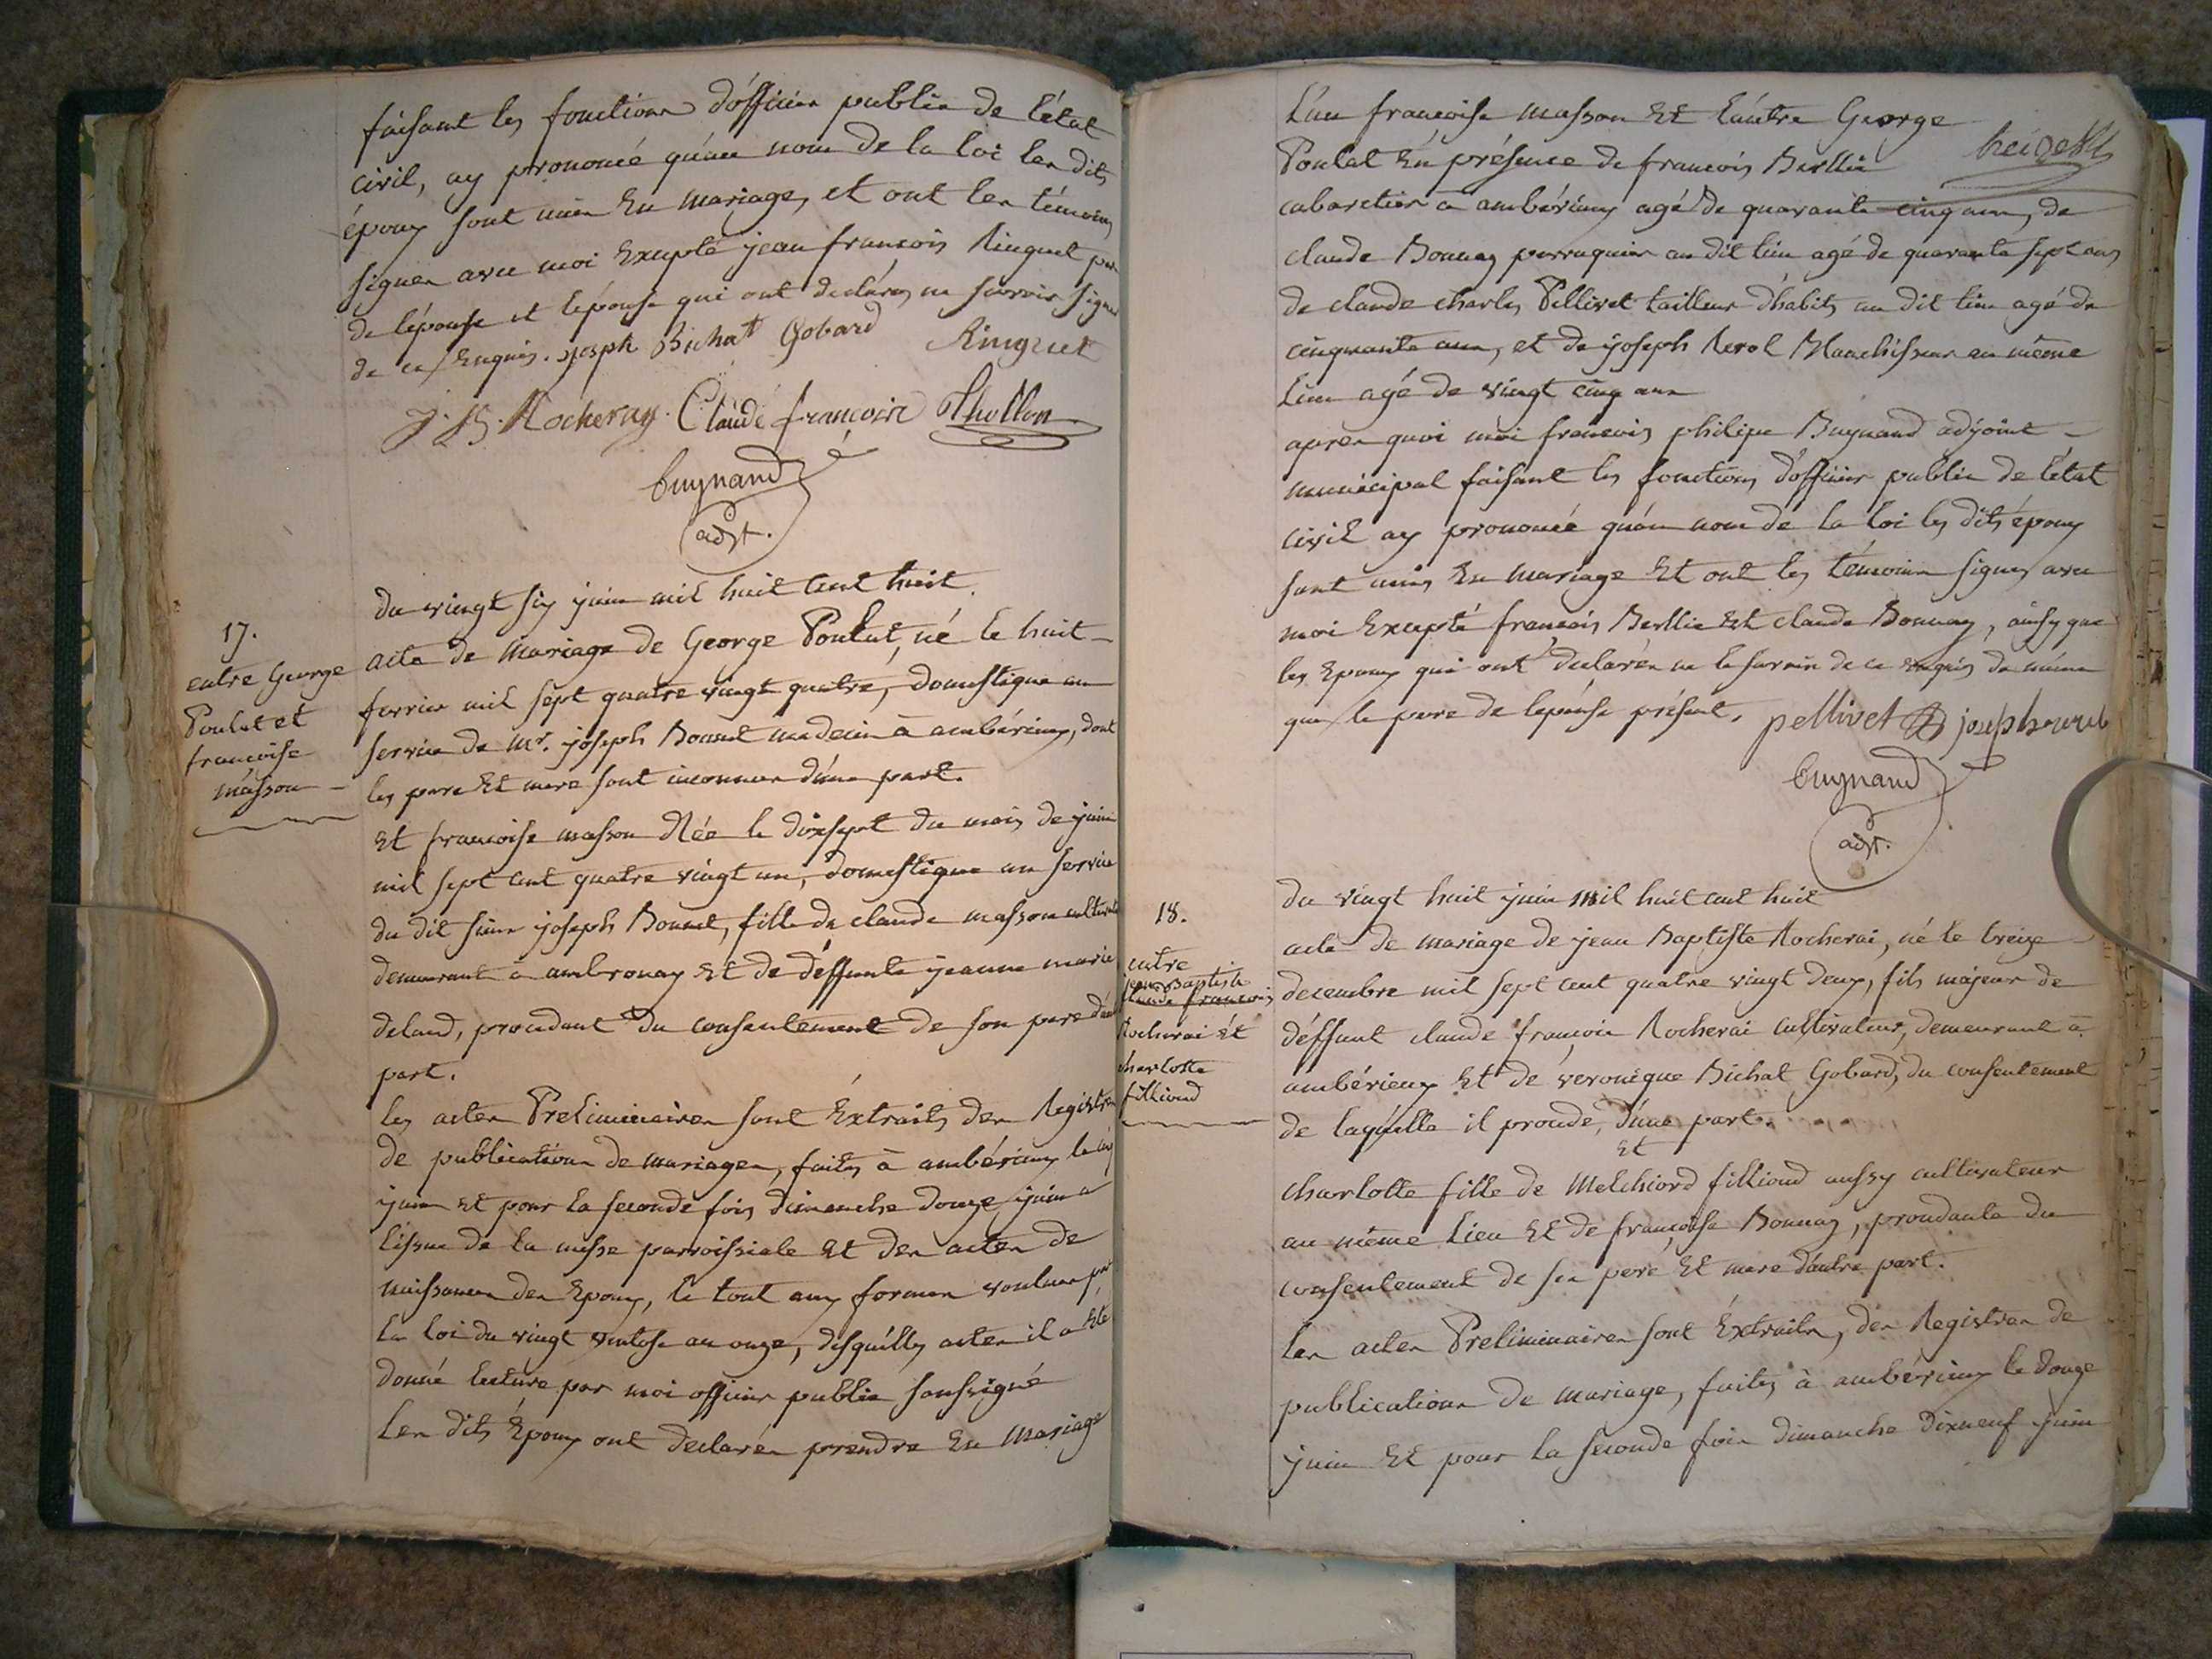 faisant les fonctions d'officier public de l'état
civil, ay prononcé qu'au nom de la loi les dits
époux sont unis En mariage, et ont les témoins
signés avec moi Excepté jean françois Ringuet pere
de l'épouse et l'épouse qui ont declarés ne savoir signer
de ce Enquis. joseph Bichat Gobard Ringuet
J. B. Rocheray. Claude françois Thollon
Buynand
adjt.
du vingt six juin mil huit cent huit.
17.
entre George
Poulat et
françoise
masson
acte de mariage de George Poulat, né le huit
fevrier mil sept quatre vingt quatre, domestique au
service de Mr. joseph Bonnet medecin à ambérieux, dont
les pere Et mere sont inconnus d'une part.
Et françoise masson Née le dixsept du mois de juin
mil sept cent quatre vingt un, domestique au service
du dit sieur joseph Bonnet, fille de claude masson
demeurant à ambronay Et de déffunte jeanne marie
deland, procedant du consentement de son pere
part.
les actes Preliminaires sont Éxtraits des Registres
de publications de mariages, faites à ambérieux le
juin Et pour la seconde fois dimanche douze juin a
lissue de la messe parroissiale Et des actes de
naissances des Epoux, le tout aux formes voulues par
la loi du vingt ventose an onze, desquelles actes il a été
donné lecture par moi officier public soussigné
Les dits Époux ont declarés prendre En mariage
L'un françoise masson Et l'autre George
Poulat En présence de françois Berllie
cabaretier à ambérieux agé de quarante cinq ans, de
claude Bonnaz perruquier au dit lieu agé de quarante sept ans
de claude charles Pellivet tailleur d'habits au dit lieu agé de
cinquante ans, et de joseph Revol Blanchisseur au même
Lieu agé de vingt cinq ans
apres quoi moi francois philipe Buynand adjoint
municipal faisant les fonctions d'officier public de l'état
civil ay prononcé qu'au nom de la loi les dits époux
sont unis En mariage Et ont les témoins signés avec
moi Excepté francois Berllie Et claude Bonnaz, ainsy que
les Epoux qui ont declarés ne le savoir de ce enquis de même
que le pere de l'épouse présent. pellivet joseph revol
Buynand
adjt.
du vingt huit juin mil huit cent huit
18.
entre
jean Baptiste
claude françois
Rocherai Et
charlotte
filliond
acte de mariage de jean Baptiste Rocherai, né le treize
decembre mil sept cent quatre vingt deux, fils majeur de
déffunt claude françois Rocherai cultivateur, demeurant à
ambérieux Et de veronique Bichat Gobard, du consentement
de laquelle il procede, d'une part.
Et
charlotte fille de Melchiord filliond aussy cultivateur
au même Lieu Et de françoise Bonnaz, procedante du
consentement de ses pere Et mere d'autre part.
Les actes Preliminaires sont Éxtraits, des Registres de
publications de mariage, faites à ambérieux le douze
juin Et pour la seconde fois dimanche dixneuf juin